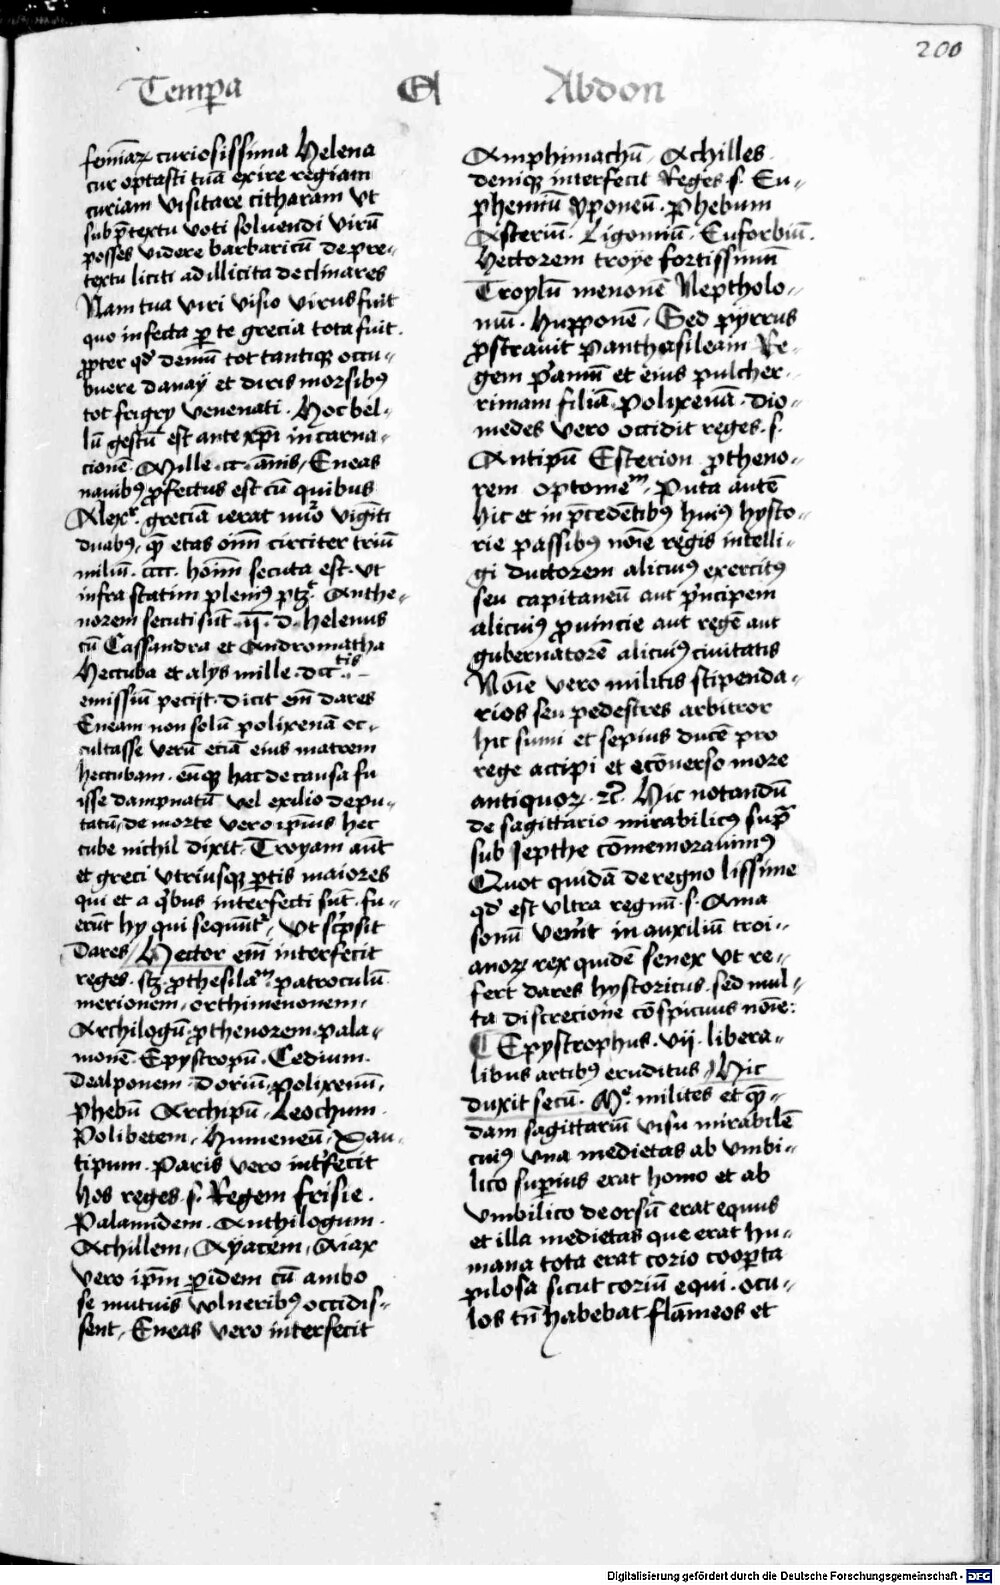 200
Temp̲a Et Abdon
feminaꝝ curiosissima Helena
cur optasti tuā exire regiam
curiam visitare citharam vt
sub p̄textu voti soluendi virū
posses videre barbaricū de pre-
textu liciti ad illicita declinares
Nam tua viri visio virus fuit
quo infecta ꝑ te grecia tota fuit.
ꝓpter qd̓ demū tot tantiqꝫ occu-
buere danay et diris morsibꝰ
tot frigry venenati. Hoc bel-
lū gestū est ante xp̄i incarna-
cionē Mille. cc. annis, Eneas
nauibꝰ ꝓfectus est cū quibus
Alexr̄. greciā ierat nūo viginti
duabꝰ, qȝ etas oīm circiter triū
miliū. cccc. hoīm secuta est. vt
infra statim pleniꝰ ptȝ. Anthe-
norem secuti sūt. ij. d. Helenus
cū Cassandra et Andromatha
Heccuba et alys mille. dcc tis
emissiū peciit. dicit em̄ dares
Eneam non solū polixenā oc-
cultasse verū eciā eius matrem
heccubam. eūqꝫ hac de causa fu
isse dampnatū vel exilio depu-
tatū, de morte vero ip̄ius hec
cube nichil dixit. Troyam aūt
et greci vtriusqꝫ ꝑtis maiores
qui et a qͥbus interfecti sūt. fu-
erūt hy qui sequūtr̄, vt scͥpsit
dares, Hector em̄ interfecit
reges. sȝ. ꝓthesilaᵐ. patroculū
merionem, orthimenonem,
Archilogū, ꝓthenorem. pala-
monē. Epystropū. Cedium.
dealponem. doriū, polixenū,
phebū Archipū, Leochum.
Polibetem, Humeneū, Xan-
tipum. Paris vero int̓fecit
hos reges. s. Regem frisie.
Palamidem. Anthilogum.
Achillem, Ayacem, Aiax
vero ip̄m ꝑidem cū ambo
se mutuis vlneribꝰ, occidis-
sent, Eneas vero interfecit
Amphimachū, Achilles
deniqꝫ interfecit Reges s. Eu-
phemiū ypponeū. Phebum
Asteriū. Ligoniū. Euforbiū.
Hectorem troye fortissimū
Troylū menonē Neptholo-
niū. Hupponē, Sed pyrrus
ꝓstrauit Panthasileam Re-
gem pͥamū et eius pulcher-
rimam filiā polixenā. dio-
medes vero occidit reges. s.
Antipū Esterion ꝓtheno-
rem optomeᵐ. Puta autē
hic et in p̄cedētibꝰ huiꝰ hysto-
rie passibꝰ noīe regis intelli-
gi ductorem alicuiꝰ exercitꝰ
seu capitaneū aut pͥncipem
alicuiꝰ ꝓuincie aut regē aut
gubernatorē alicuiꝰ ciuitatis
Noīe vero militis stipenda-
rios seu pedestres arbitror
hic sumi et sepius ducē pro
rege accipi et ecōuerso more
antiquoꝝ. ⁊c̄. Hic notandū
de sagittario mirabilicꝰ supͣ
sub Jepthe cōmemorauimꝰ
Quot quidā de regno lissime
qd̓ est vltra regnū. s. Ama
sonū venͥt in auxiliū troi-
anoꝝ rex quidē senex vt re-
fert dares hystoricus. sed mul-
ta discrecione cōspicuus noīe:
Epystrophus. vij. libera-
libus artibꝰ eruditus, Hic
duxit secū. Mᵉ. milites et qͣ-
dam sagittariū visu mirabilē
cuiꝰ vna medietas ab vmbi-
lico suꝑius erat homo et ab
vmbilico deorsū erat equus
et illa medietas que erat hu-
mana tota erat corio cooꝑta
pilosa sicut coriū equi. ocu-
los tn̄ habebat flāmeos et
Digitalisierung gefördert durch die Deutsche Forschungsgemeinschaft - DFG